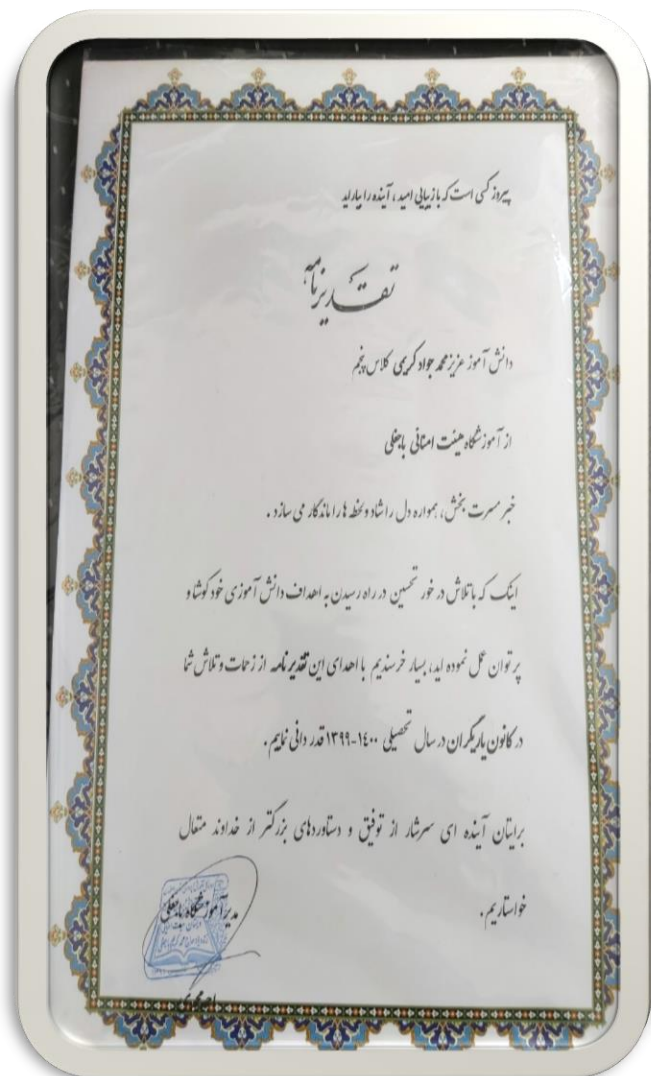 پیروز کسی است که با زیبایی امید، آینده را بیاراید
تقدیرنامه
دانش آموز عزیز محمد جواد کریمی کلاس پنجم
از آموزشگاه هیئت امنائی
خبر مسرت بخش، همواره دل را شاد و لحظه ها را ماندگار می سازد .
اینک که با تلاش در خور تحسین در راه رسیدن به اهداف دانش آموزی خود کوشا و
پر توان عمل نموده اید، بسیار خرسندیم با اهدای این تقدیرنامه از زحمات و تلاش شما
در کانون یاریگران در سال تحصیلی ۱۴۰۰-۱۳۹۹ قدر دانی نماییم.
برایتان آینده ای سرشار از توفیق و دستاوردهای بزرگتر از خداوند متعال
خواستاریم.
مدیر آموزشگاه